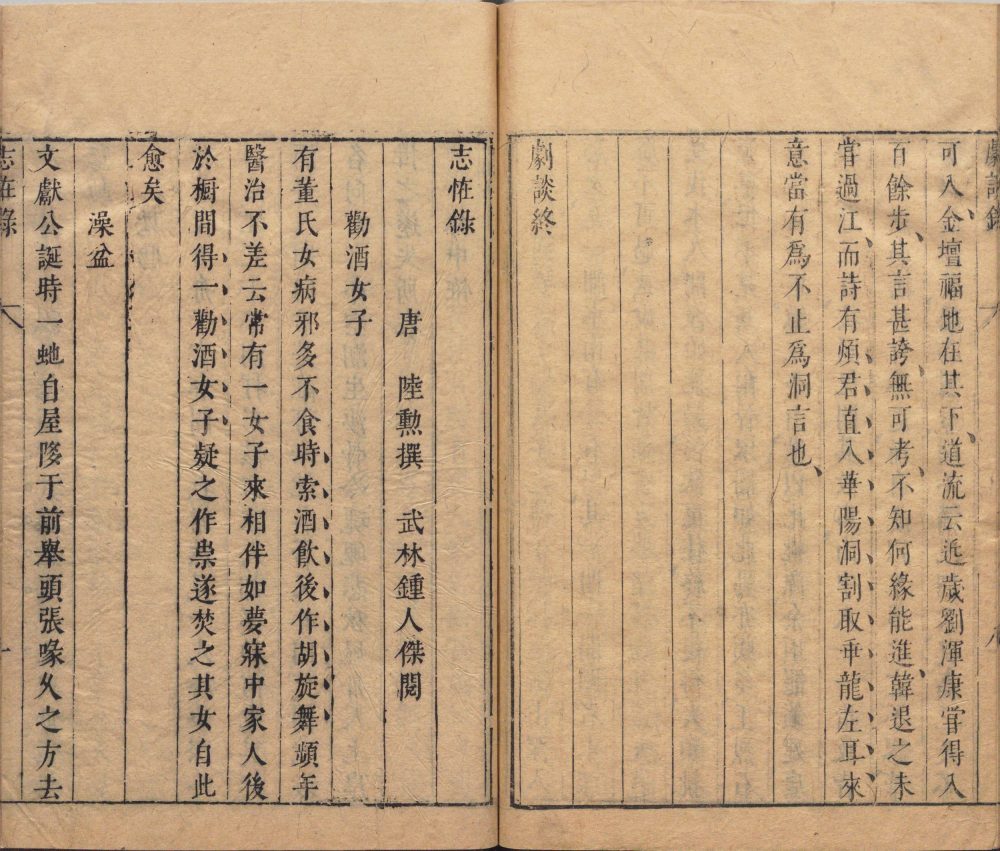 可入金壇福地在其下道流云近歲劉渾康嘗得入
百餘步其言甚誇無可考不知何緣能進韓退之未
嘗過江而詩有煩君直入華陽洞割取乖龍左耳來
意當有爲不止爲洞言也
劇談終
志怪錄
唐 陸勲撰 武林鍾人傑閱
勸酒女子
有董氏女病邪多不食時索酒飲後作胡旋舞頻年
醫治不差云常有一女子來相伴如夢寐中家人後
於櫥間得一勸酒女子疑之作祟遂焚之其女自此
愈矣
澡盆
文獻公誕時一虵自屋隊于前舉頭張喙久之方去
志怪錄
一